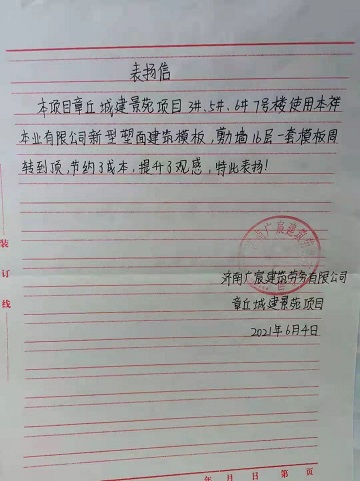 表扬信
本项目章丘城建景苑项目3#.5#.6#7号楼使用本祥
木业有限公司新型塑面建筑模板,剪力墙16层一套模板周
转到顶,节约了成本,提升了观感,特此表扬!
济南广宸建筑劳务有限公司
章丘城建景苑项目
2021年6月4日
装
订
线
年 月 日 第 页